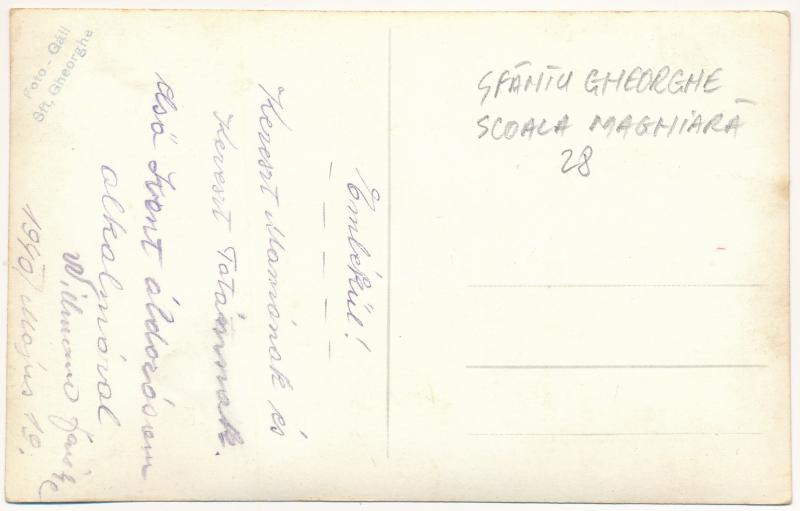 Foto - Gáll
Sft. Gheorghe
Emlékül!
Kereszt Mamának és
Kereszt Tatámnak.
első Szent áldozásom
alkalmával
1940 Május 19.
SFÂNTU GHEORGHE
SCOALA MAGHIARĂ
28